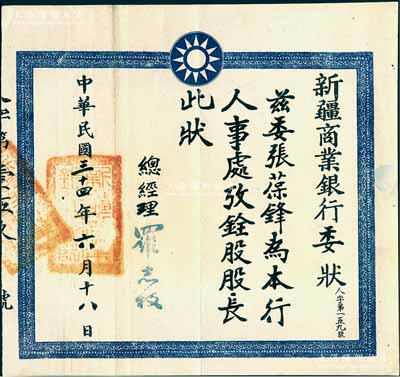 新疆商業銀行委狀
人字第一五九號
兹委張葆鋒為本行
人事處攷銓股股長
此狀
總經理 羅志枚
中華民國三十四年六月十八日
人字第壹伍玖號